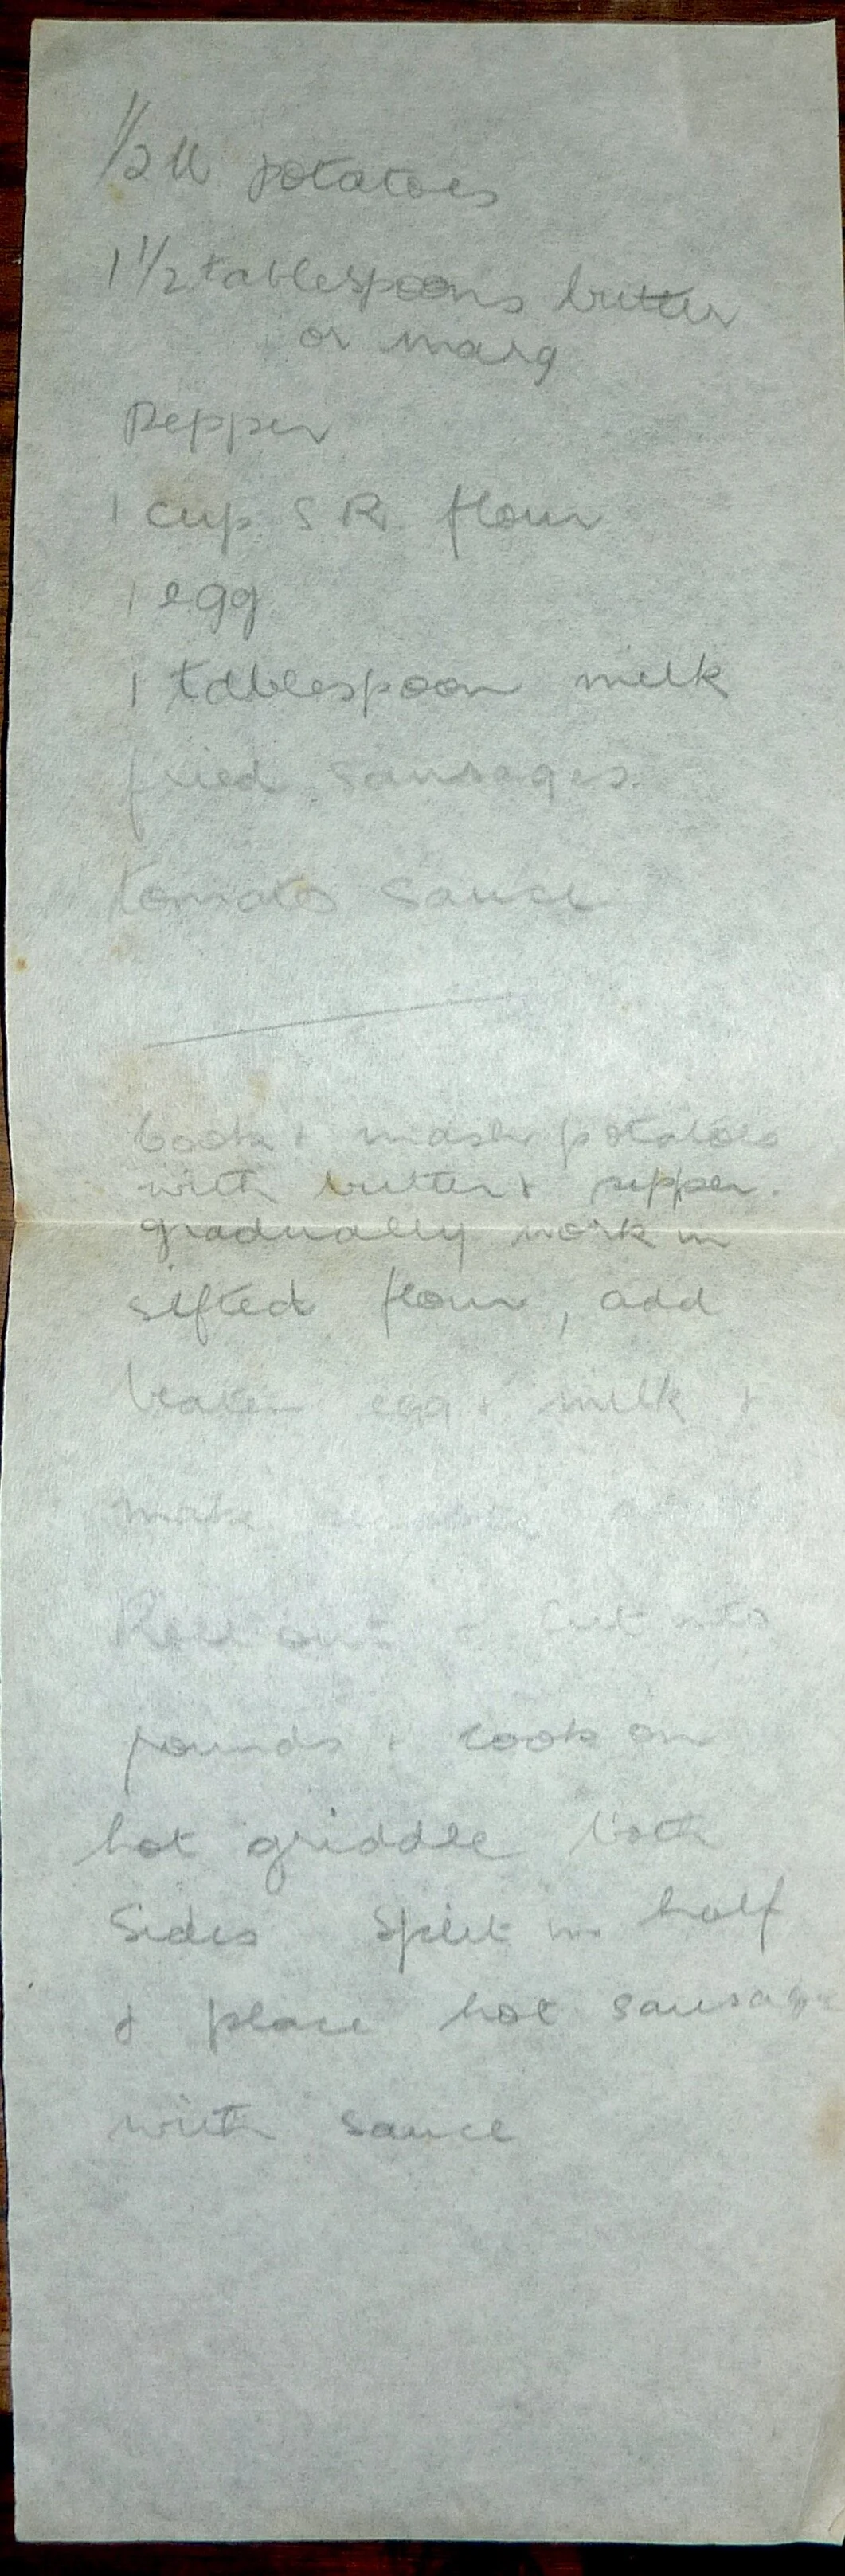 1/2 lb potatoes
1 1/2 tablespoons butter
or marg
Pepper
1 cup S R flour
1 egg
1 tablespoon milk
fried sausages.
tomato sauce
Cook + mash potatoes
with butter + pepper.
gradually work in
sifted flour, add
beaten egg + milk +
make
Roll out + cut into
rounds + cook on
hot griddle both
sides Split in half
& place hot sausage
with sauce